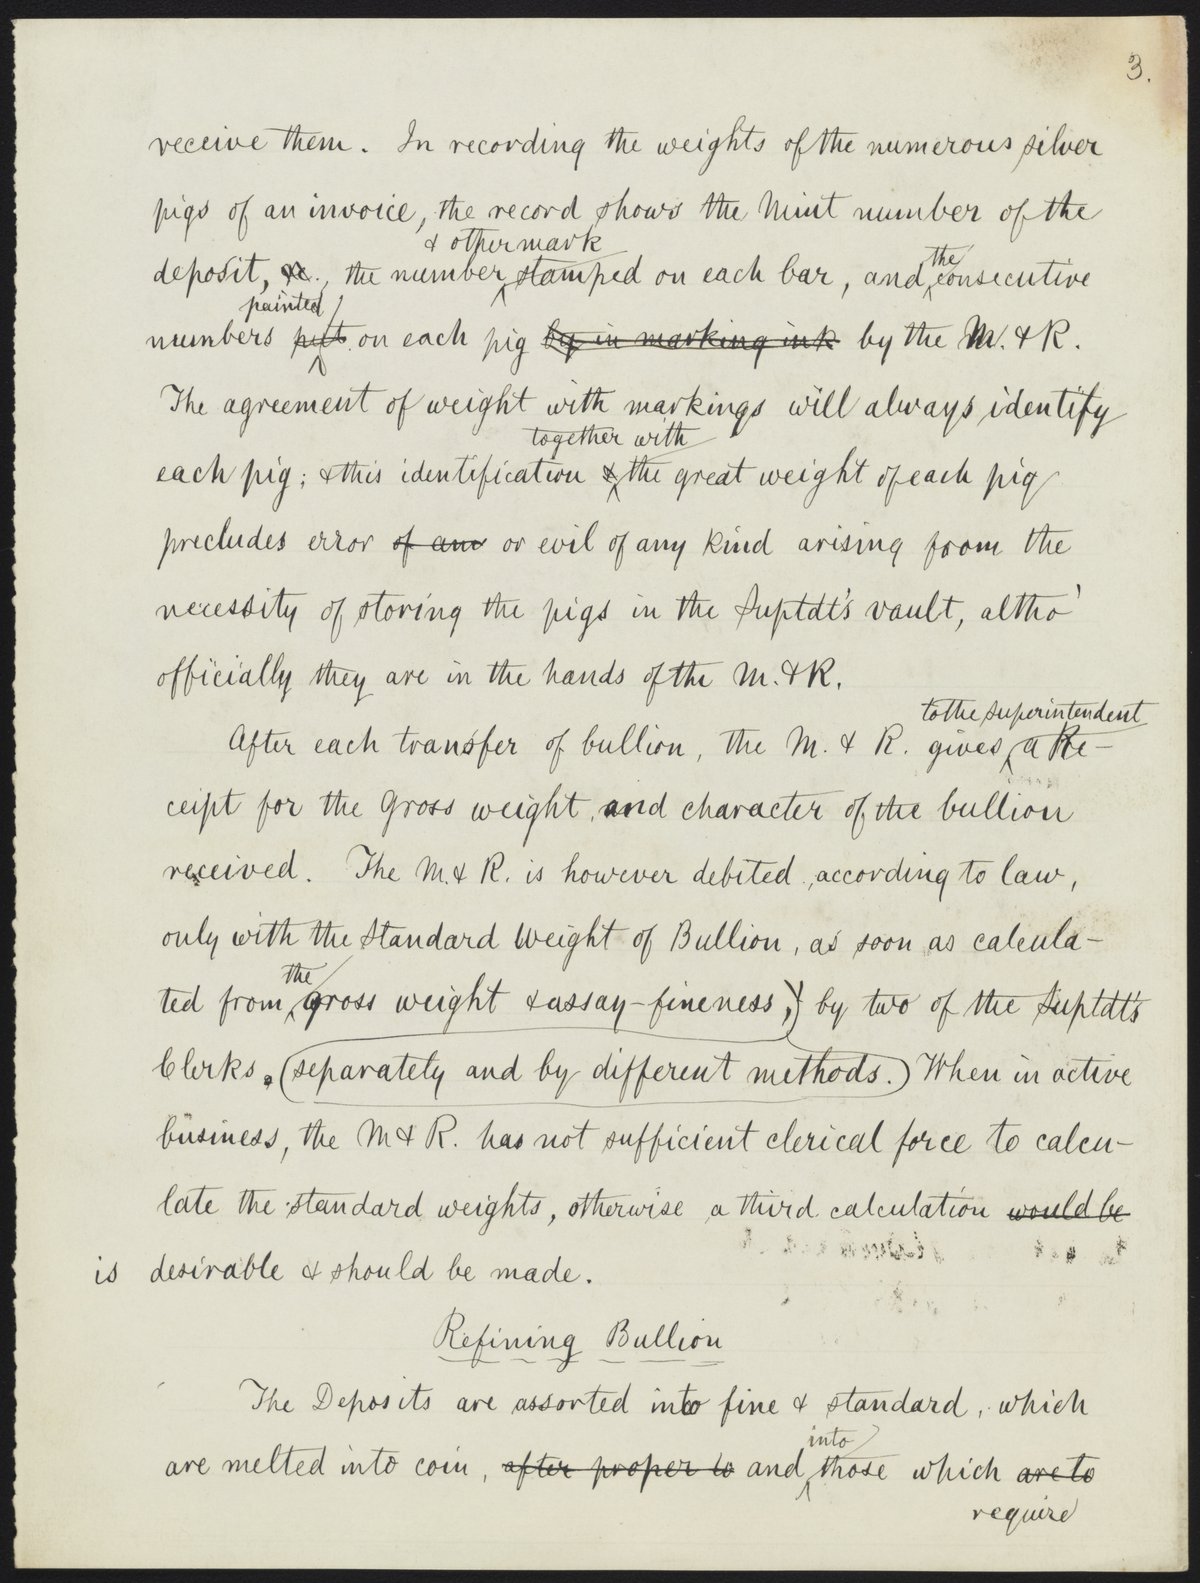 3.
receive them. In recording the weights of the numerous silver
pigs of an invoice, the record shows the Mint number of the
& other mark
deposit, &c., the number stamped on each bar, and the consecutive
painted
numbers put on each pig by in marking ink by the M. & R.
The agreement of weight with markings will always identify
together with
each pig; & this identification & the great weight of each pig
precludes error of any or evil of any kind arising from the
necessity of storing the pigs in the Suptdt's vault, altho'
officially they are in the hands of the M. & R.
to the Superintendent
After each transfer of bullion, the M. & R. gives a Re-
ceipt for the Gross weight, and character of the bullion
received. The M. & R. is however debited, according to law,
only with the Standard Weight of Bullion, as soon as calcula-
the
ted from gross weight & assay-fineness, by two of the Suptdt's
Clerks. (separately and by different methods.) When in active
business, the M & R. has not sufficient clerical force to calcu-
late the standard weights, otherwise a third calculation would be
is desirable & should be made.
Refining Bullion
The Deposits are assorted into fine & standard, which
into
are melted into coin, after proper to and those which are to
require